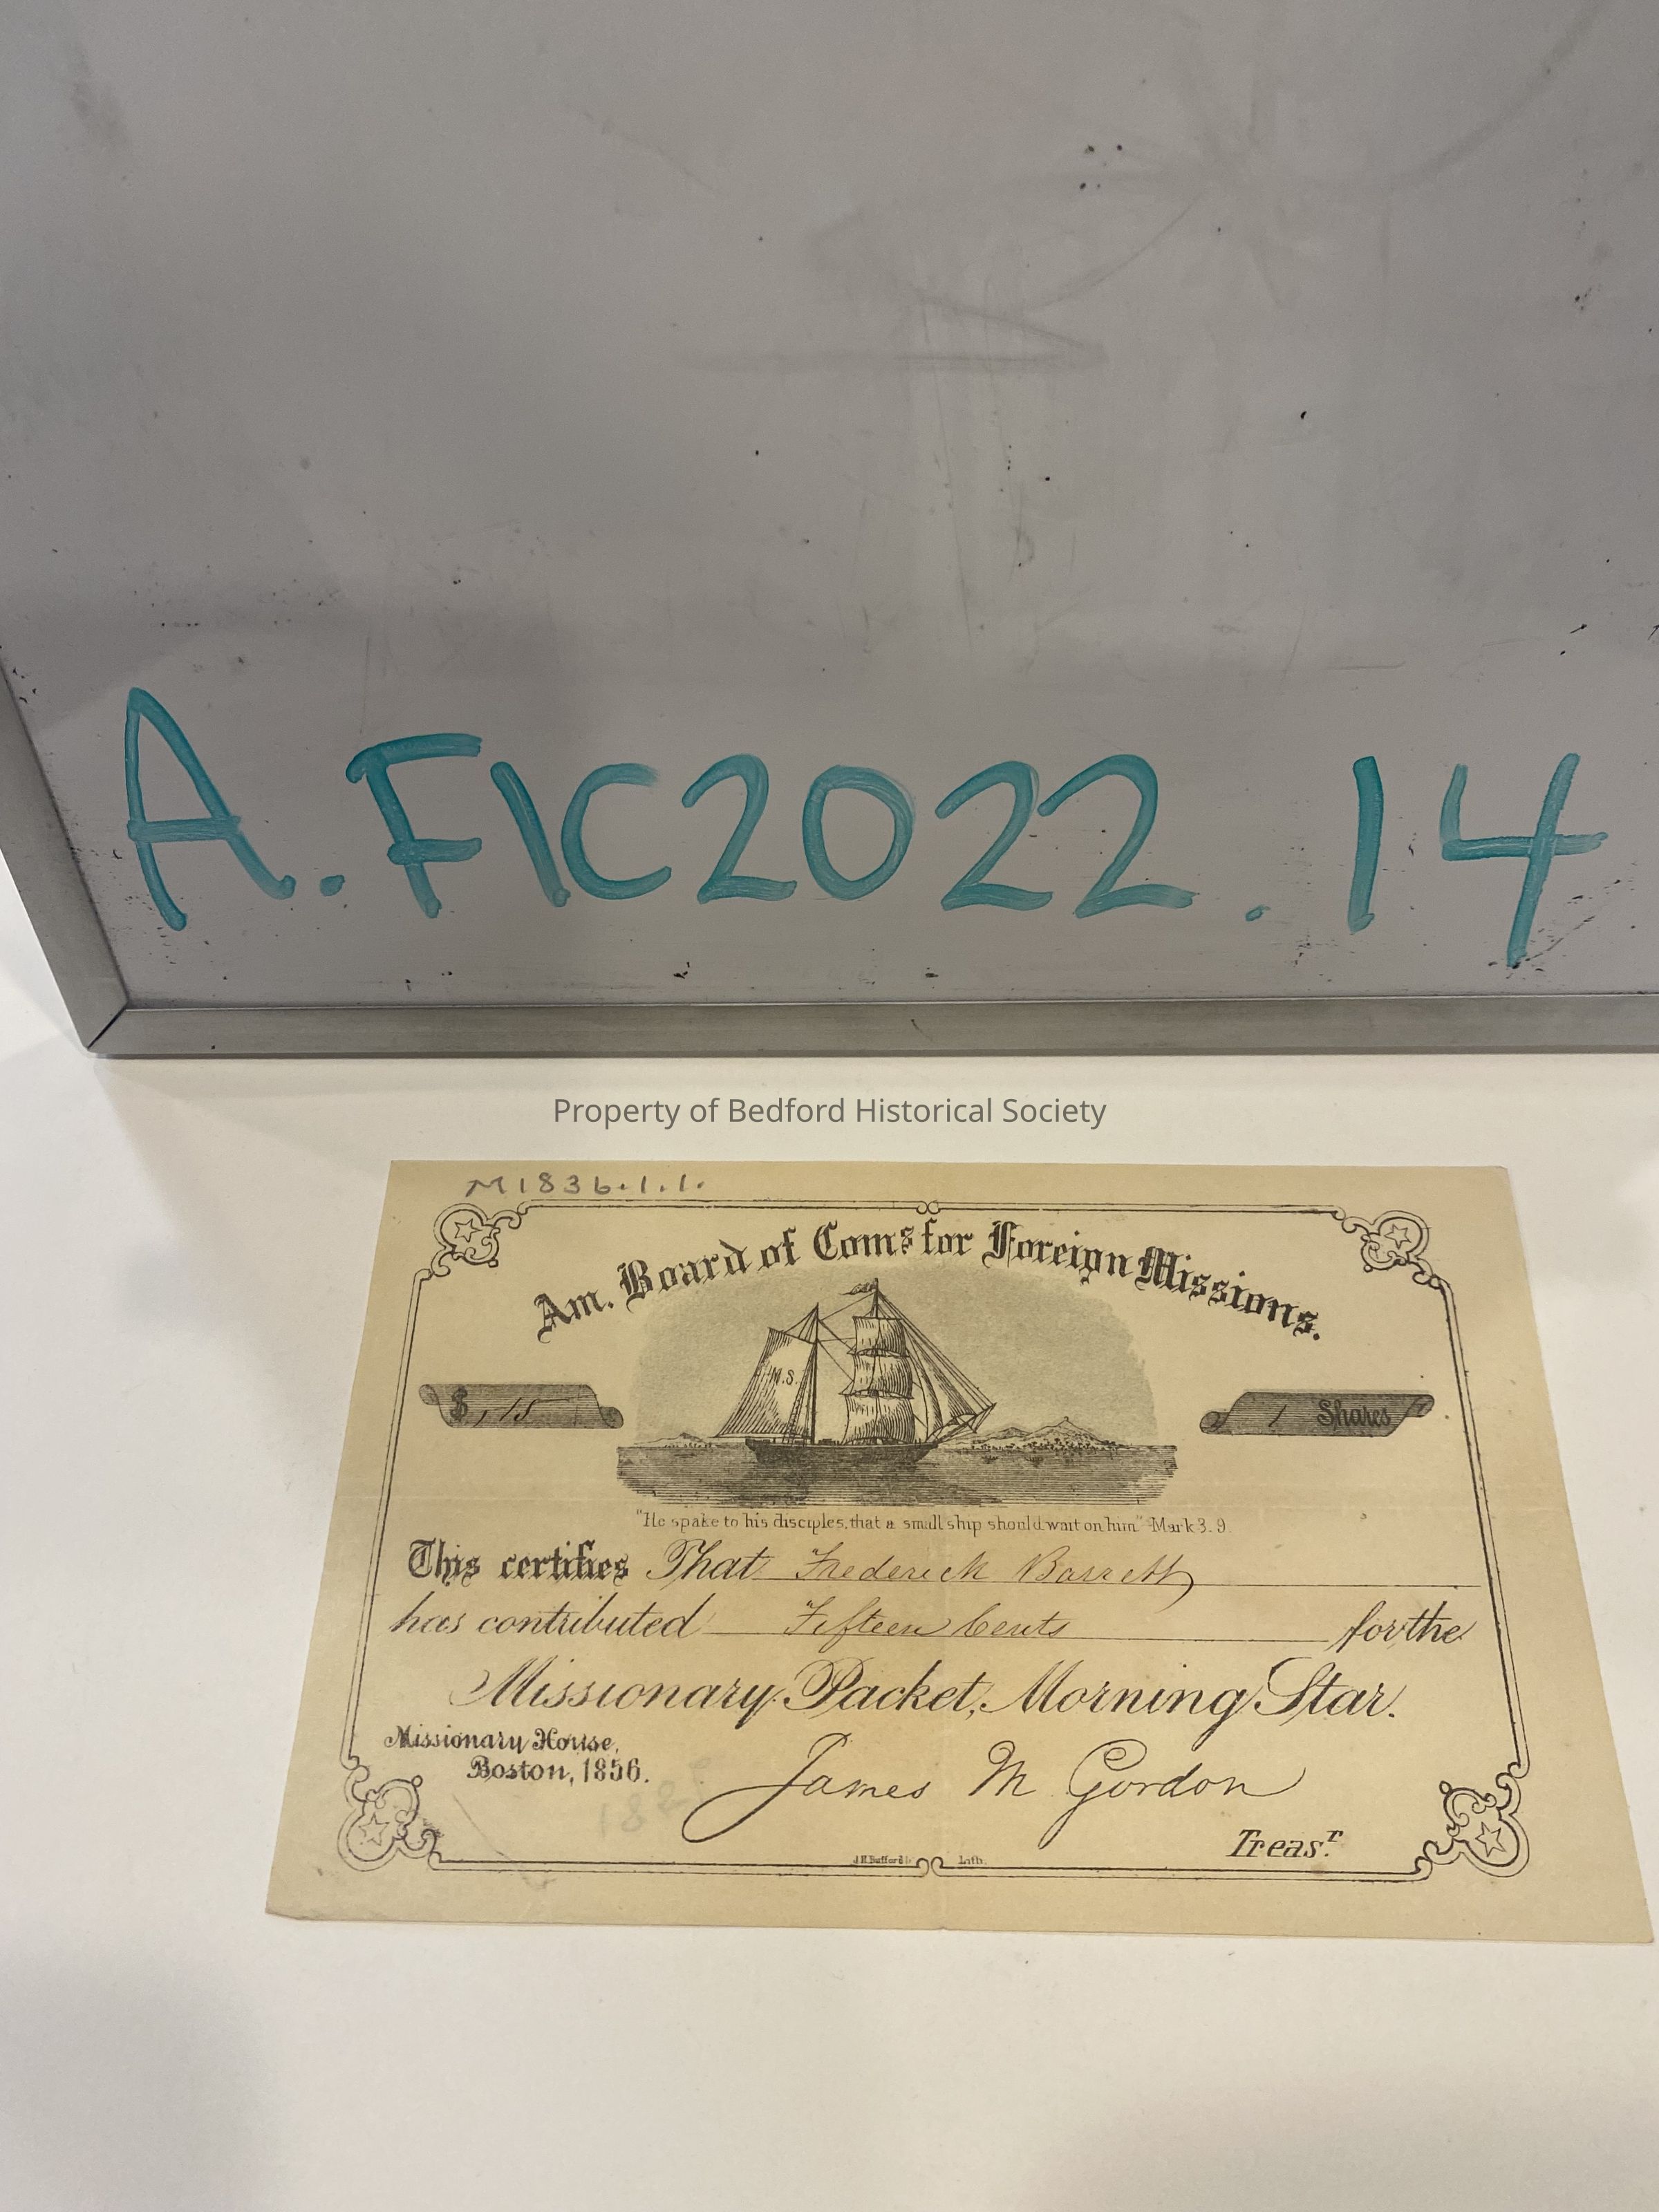 A.FIC2022.14
Property of Bedford Historical Society
M1836.1.1.
Am. Board of Coms for Foreign Missions.
M.S.
$ ,15
1 Shares
"He spake to his disciples, that a small ship should wait on him." Mark 3. 9.
This certifies That Frederick Barrett
has contributed Fifteen Cents for the
Missionary Packet, Morning Star.
Missionary House,
Boston, 1856.
James M Gordon
Treasr.
J.H. Bufford Lith.